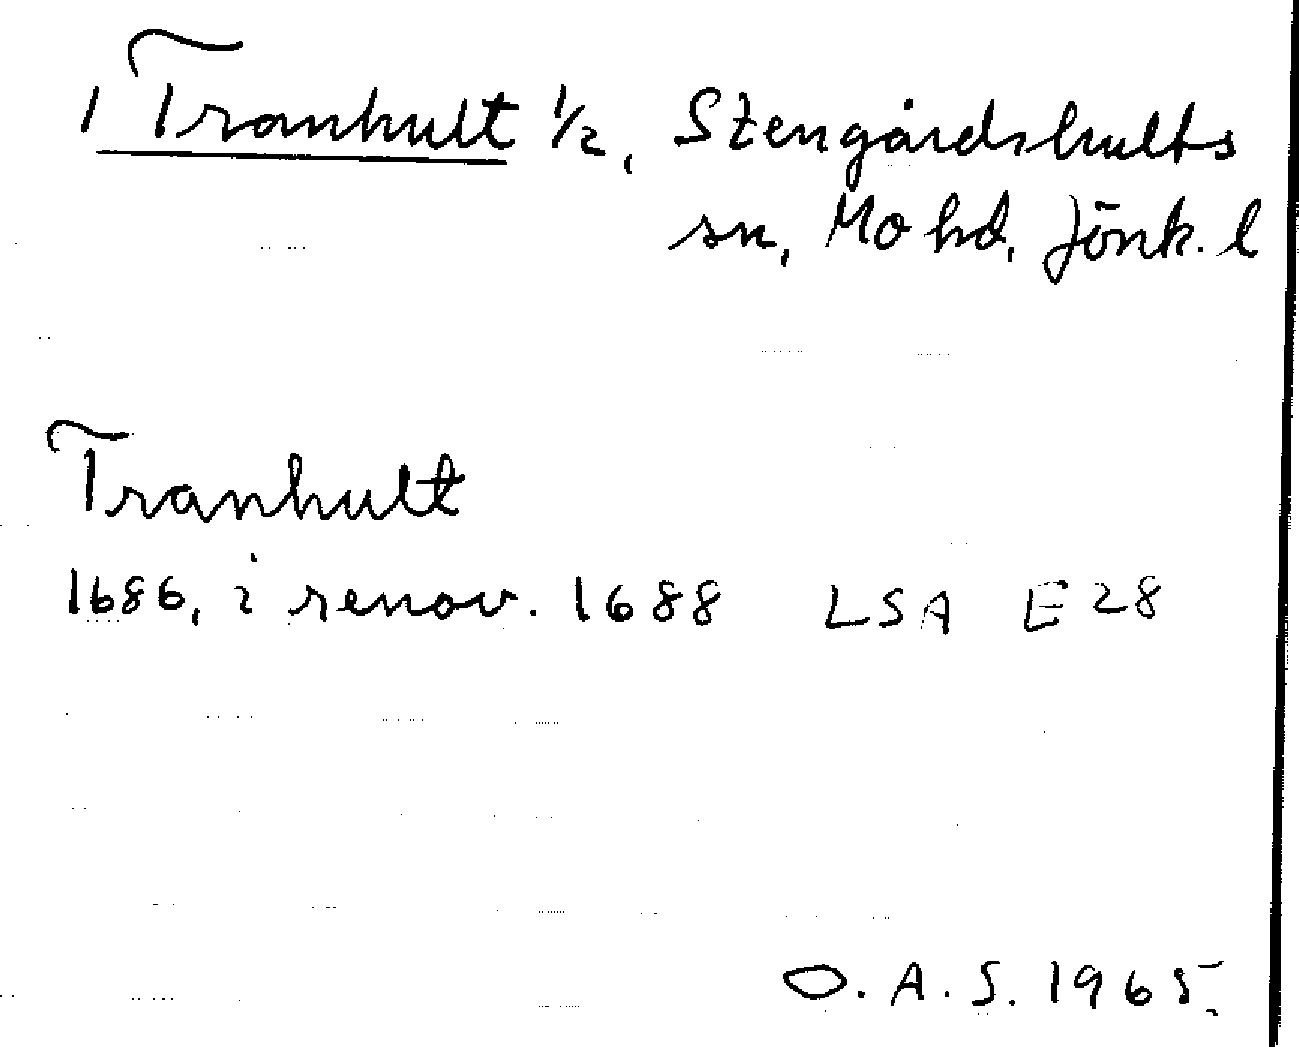 1 Tranhult 1/2, Stengårdshults
sn, Mo hd, Jönk. l
Tranhult
1686, i renov. 1688 LSA E28
O. A. S. 1965.